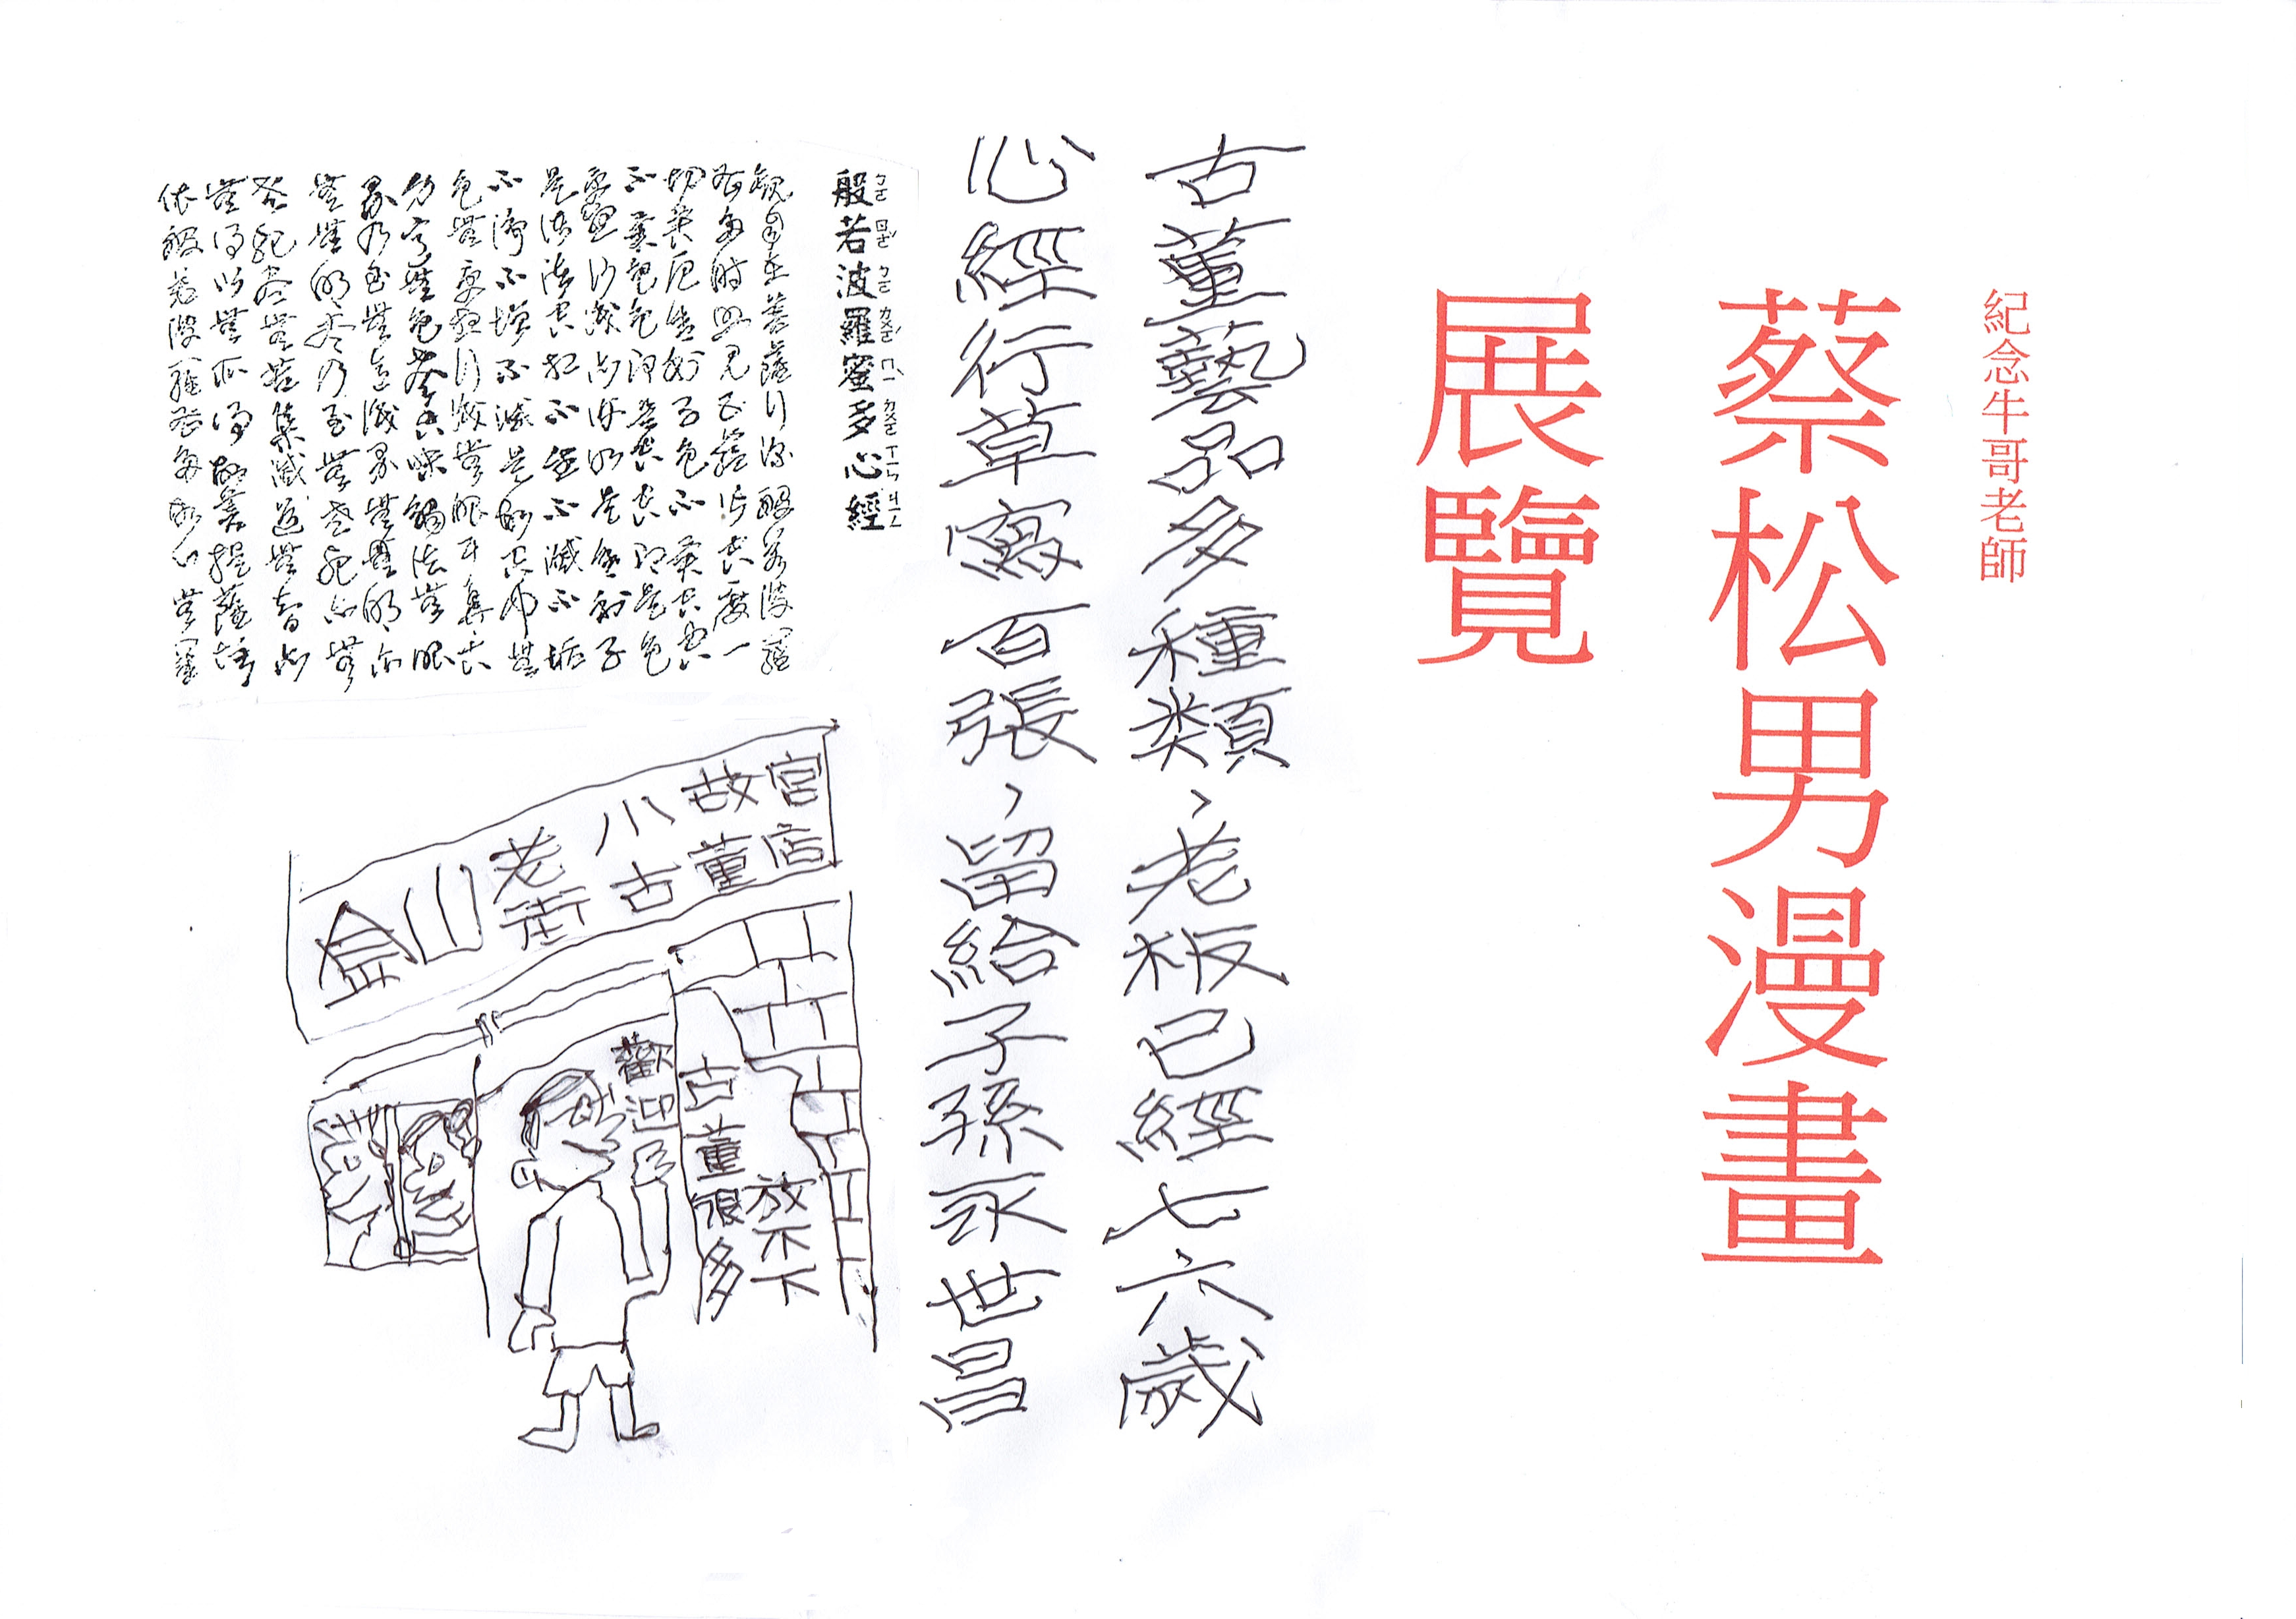 紀念牛哥老師
蔡松男漫畫
展覽
古董藝品多種類、老板已經七六歲
心經行草寫百張、留給子孫永世昌
般若波羅蜜多心經
ㄅㄛ ㄖㄜˇ ㄅㄛ ㄌㄨㄛˊ ㄇㄧˋ ㄉㄨㄛ ㄒㄧㄣ ㄐㄧㄥ
觀自在菩薩行深般若波羅
蜜多時照見五蘊皆空度一
切苦厄舍利子色不異空空
不異色色即是空空即是色
受想行識亦復如是舍利子
是諸法空相不生不滅不垢
不淨不增不減是故空中無
色無受想行識無眼耳鼻舌
身意無色聲香味觸法無眼
界乃至無意識界無無明亦
無無明盡乃至無老死亦無
老死盡無苦集滅道無智亦
無得以無所得故菩提薩埵
依般若波羅蜜多故心無罣
金山
老街
小故宮
古董店
歡迎
放不下
古董很多